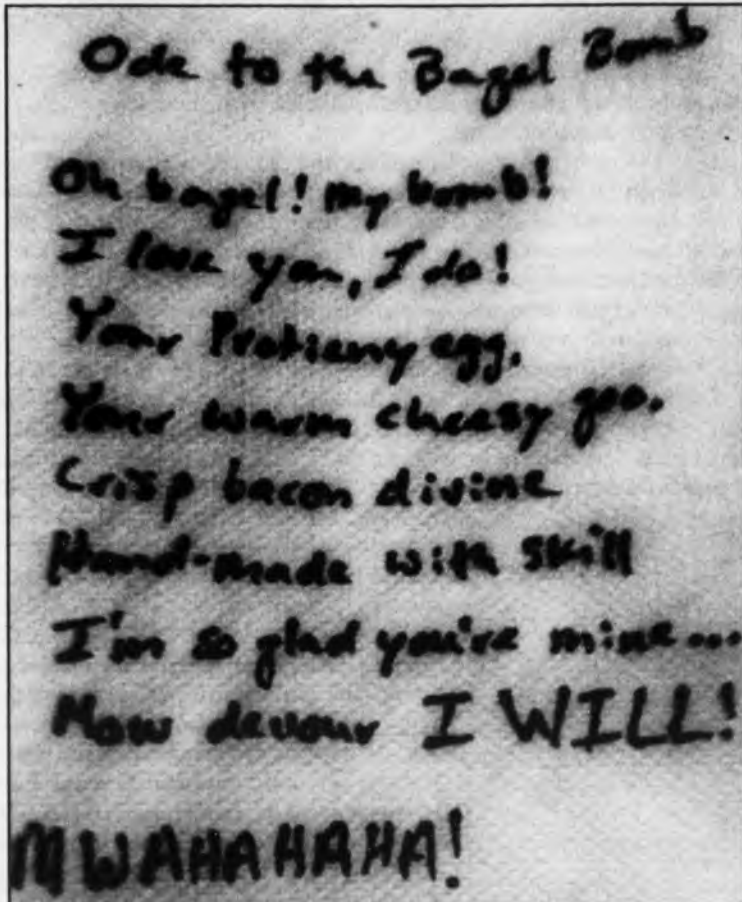 Ode to the Bagel Bomb
Oh bagel! my bomb!
I love you, I do!
Your Protieny egg,
Your warm cheesy goo.
Crisp bacon divine
Hand-made with skill
I'm so glad you're mine...
Now devour I WILL!
MWAHAHAHA!